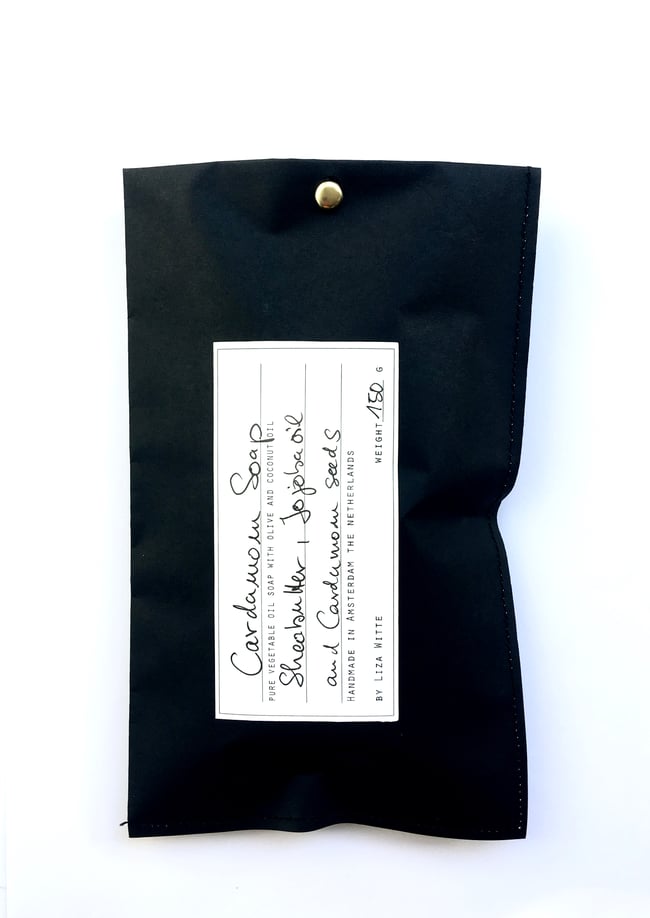 Cardamom Soap
PURE VEGETABLE OIL SOAP WITH OLIVE AND COCONUT OIL
Sheabutter, Jojoba oil
and Cardamom seeds
HANDMADE IN AMSTERDAM THE NETHERLANDS
BY LIZA WITTE WEIGHT 150 G